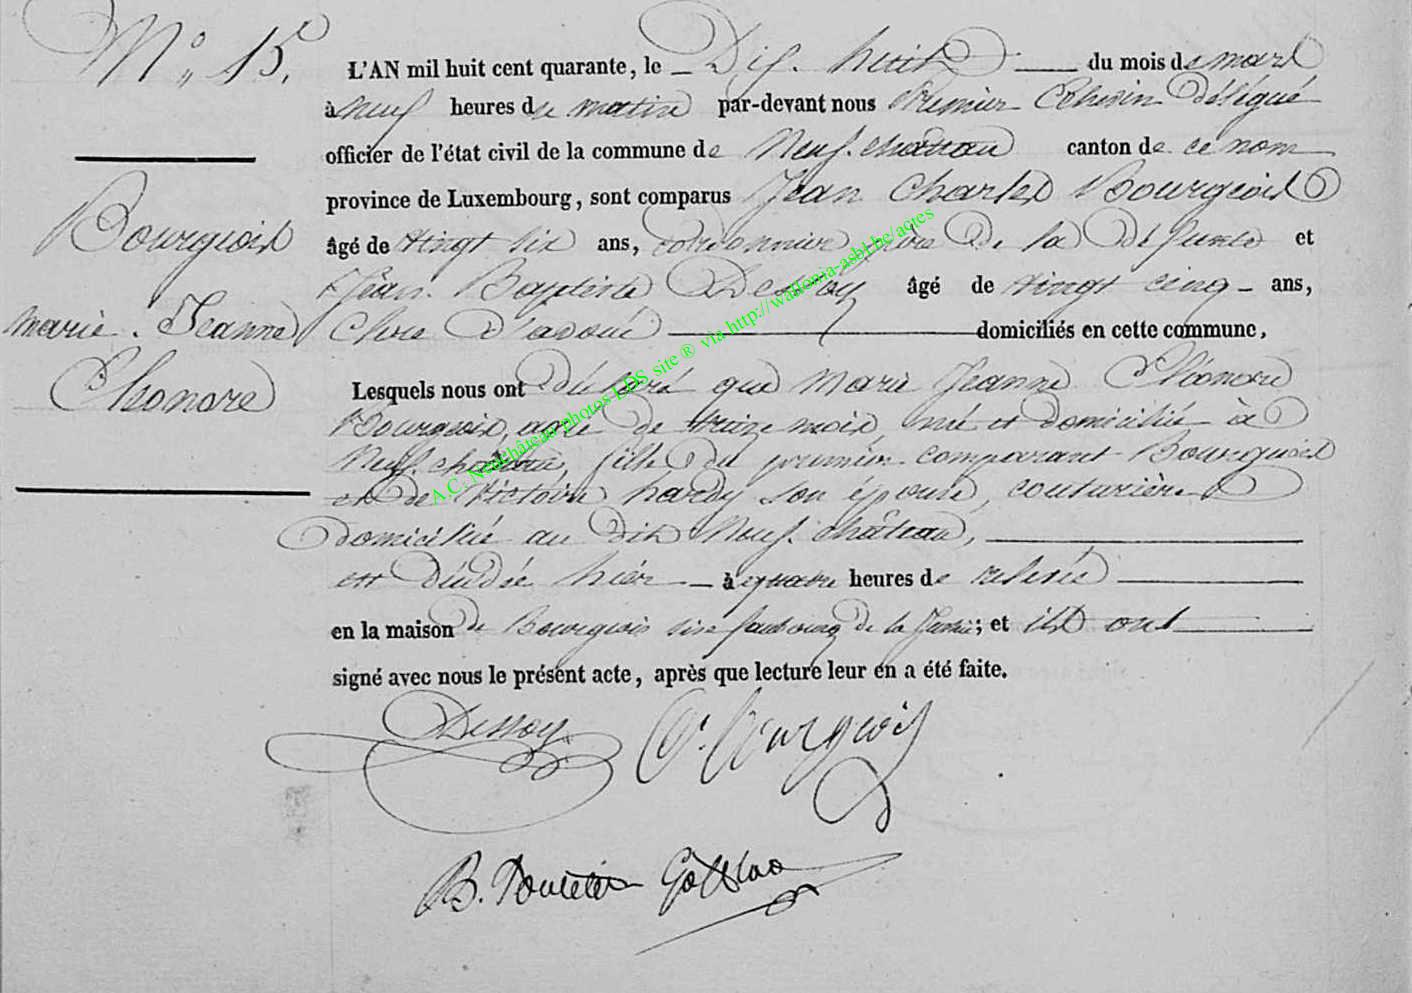 N° 15.
Bourgeois
marie. Jeanne
Eléonore
L'AN mil huit cent quarante, le Dix. huit du mois de mars
à neuf heures du matin par-devant nous Premier Echevin délégué
officier de l'état civil de la commune de Neuf. château canton de ce nom
province de Luxembourg, sont comparus Jean Charles Bourgeois
âgé de vingt six ans, cordonnier père de la défunte et
Jean. Baptiste Dessoy âgé de vingt cinq ans,
Clerc d'avoué domiciliés en cette commune,
Lesquels nous ont déclaré que marie Jeanne Eléonore
Bourgeois, agée de treize mois, née et domiciliée à
Neuf. château, fille du premier comparant Bourgeois
et de Victoire hardy son épouse, couturière
domiciliée au dit Neuf. château,
est décédée hier à quatre heures de relevée
en la maison de Bourgeois sise faubourg de la ; et ils ont
signé avec nous le présent acte, après que lecture leur en a été faite.
Dessoy Bourgeois
B.
A.C. Neufchâteau photos LDS site ® via http://wallonia-asbl.be/actes